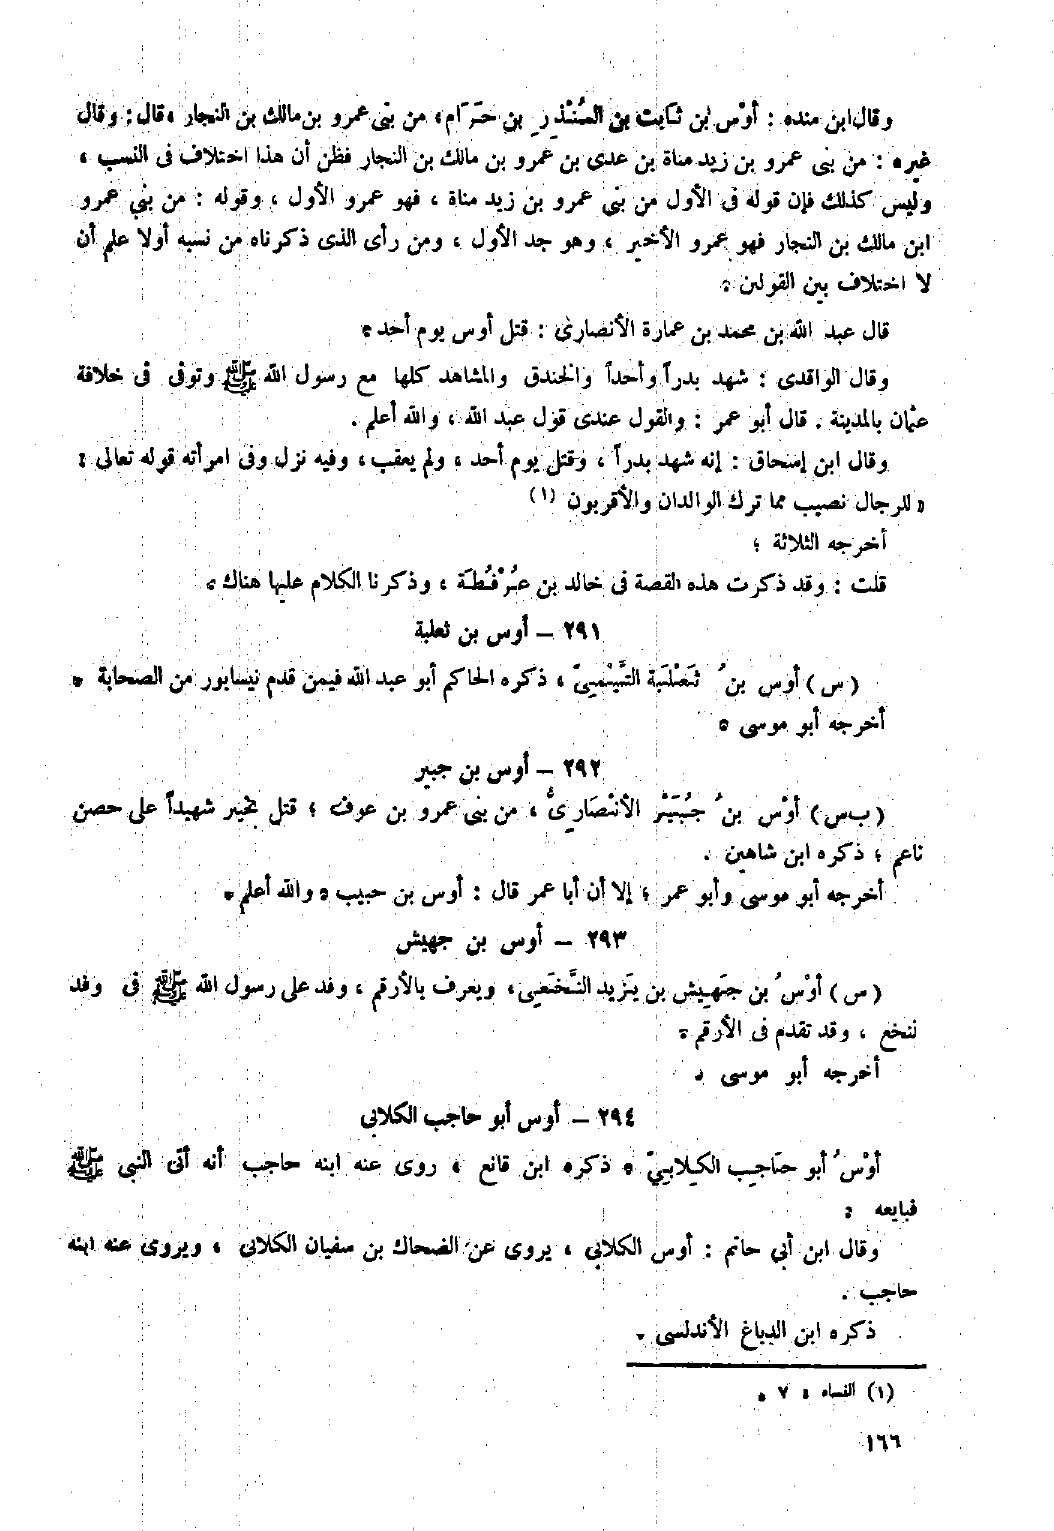 وقال ابن منده : أوْس بن ثَابِت بن المُنْذِرِ بن حَرَام، من بنى عمرو بن مالك بن النجار ، قال : وقال
غيره : من بنى عمرو بن زيد مناة بن عدى بن عمرو بن مالك بن النجار فظن أن هذا اختلاف فى النسب ،
وليس كذلك فإن قوله فى الأول من بنى عمرو بن زيد مناة ، فهو عمرو الأول ، وقوله : من بنى عمرو
ابن مالك بن النجار فهو عمرو الأخير ، وهو جد الأول ، ومن رأى الذى ذكرناه من نسبه أولا علم أن
لا اختلاف بين القولين .
قال عبد الله بن محمد بن عمارة الأنصارى : قتل أوس يوم أحد .
وقال الواقدى : شهد بدراً وأحداً والخندق والمشاهد كلها مع رسول الله ﷺ وتوفى فى خلافة
عثمان بالمدينة . قال أبو عمر : والقول عندى قول عبد الله ، والله أعلم .
وقال ابن إسحاق : إنه شهد بدراً ، وقتل يوم أحد ، ولم يعقب، وفيه نزل وفى امرأته قوله تعالى :
« للرجال نصيب مما ترك الوالدان والأقربون (١)
أخرجه الثلاثة .
قلت : وقد ذكرت هذه القصة فى خالد بن عُرْفُطَة ، وذكرنا الكلام عليها هناك .
٢٩١ – أوس بن ثعلبة
(س) أوْس بنُ ثَعْلَبة التَّيْمىّ ، ذكره الحاكم أبو عبد الله فيمن قدم نيسابور من الصحابة .
أخرجه أبو موسى .
٢٩٢ – أوس بن جبير
(ب س) أوْس بنُ جُبَيْر الأنْصَارِىُّ ، من بنى عمرو بن عوف ؛ قتل بخيبر شهيداً على حصن
ناعم ؛ ذكره ابن شاهين .
أخرجه أبو موسى وأبو عمر ؛ إلا أن أبا عمر قال : أوس بن حبيب . والله أعلم .
٢٩٣ – أوس بن جهيش
(س) أوْسُ بن جَهِيش بن يَزِيد النَّخَعىِ، ويعرف بالأرقم ، وفد على رسول الله ﷺ فى وفد
النخع ، وقد تقدم فى الأرقم .
أخرجه أبو موسى .
٢٩٤ – أوس أبو حاجب الكلابى
أوْسُ أبو حَاجِب الكِلابِىّ . ذكره ابن قانع ، روى عنه ابنه حاجب أنه أتى النبى ﷺ
فبايعه .
وقال ابن أبى حاتم : أوس الكلابى ، يروى عن الضحاك بن سفيان الكلابى ، ويروى عنه ابنه
حاجب .
ذكره ابن الدباغ الأندلسى .
(١) النساء : ٧ .
١٦٦